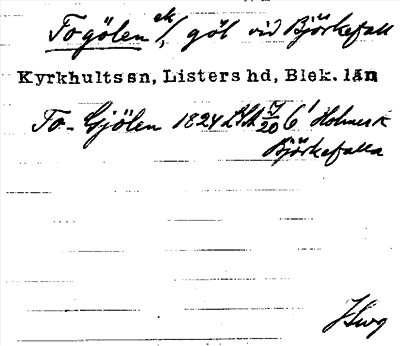 Togölen ek/, göl vid Björkefall
Kyrkhults sn, Listers hd, Blek. län
To-Gjölen 1824 7/20 6' Holmerk
Björkefalla